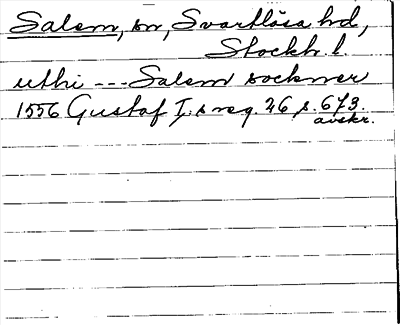 Salem, sn, Svartlösa hd,
Stockh. l.
uthi --- Salem sockner
1556 Gustaf I:s reg. 26 s. 673.
avskr.